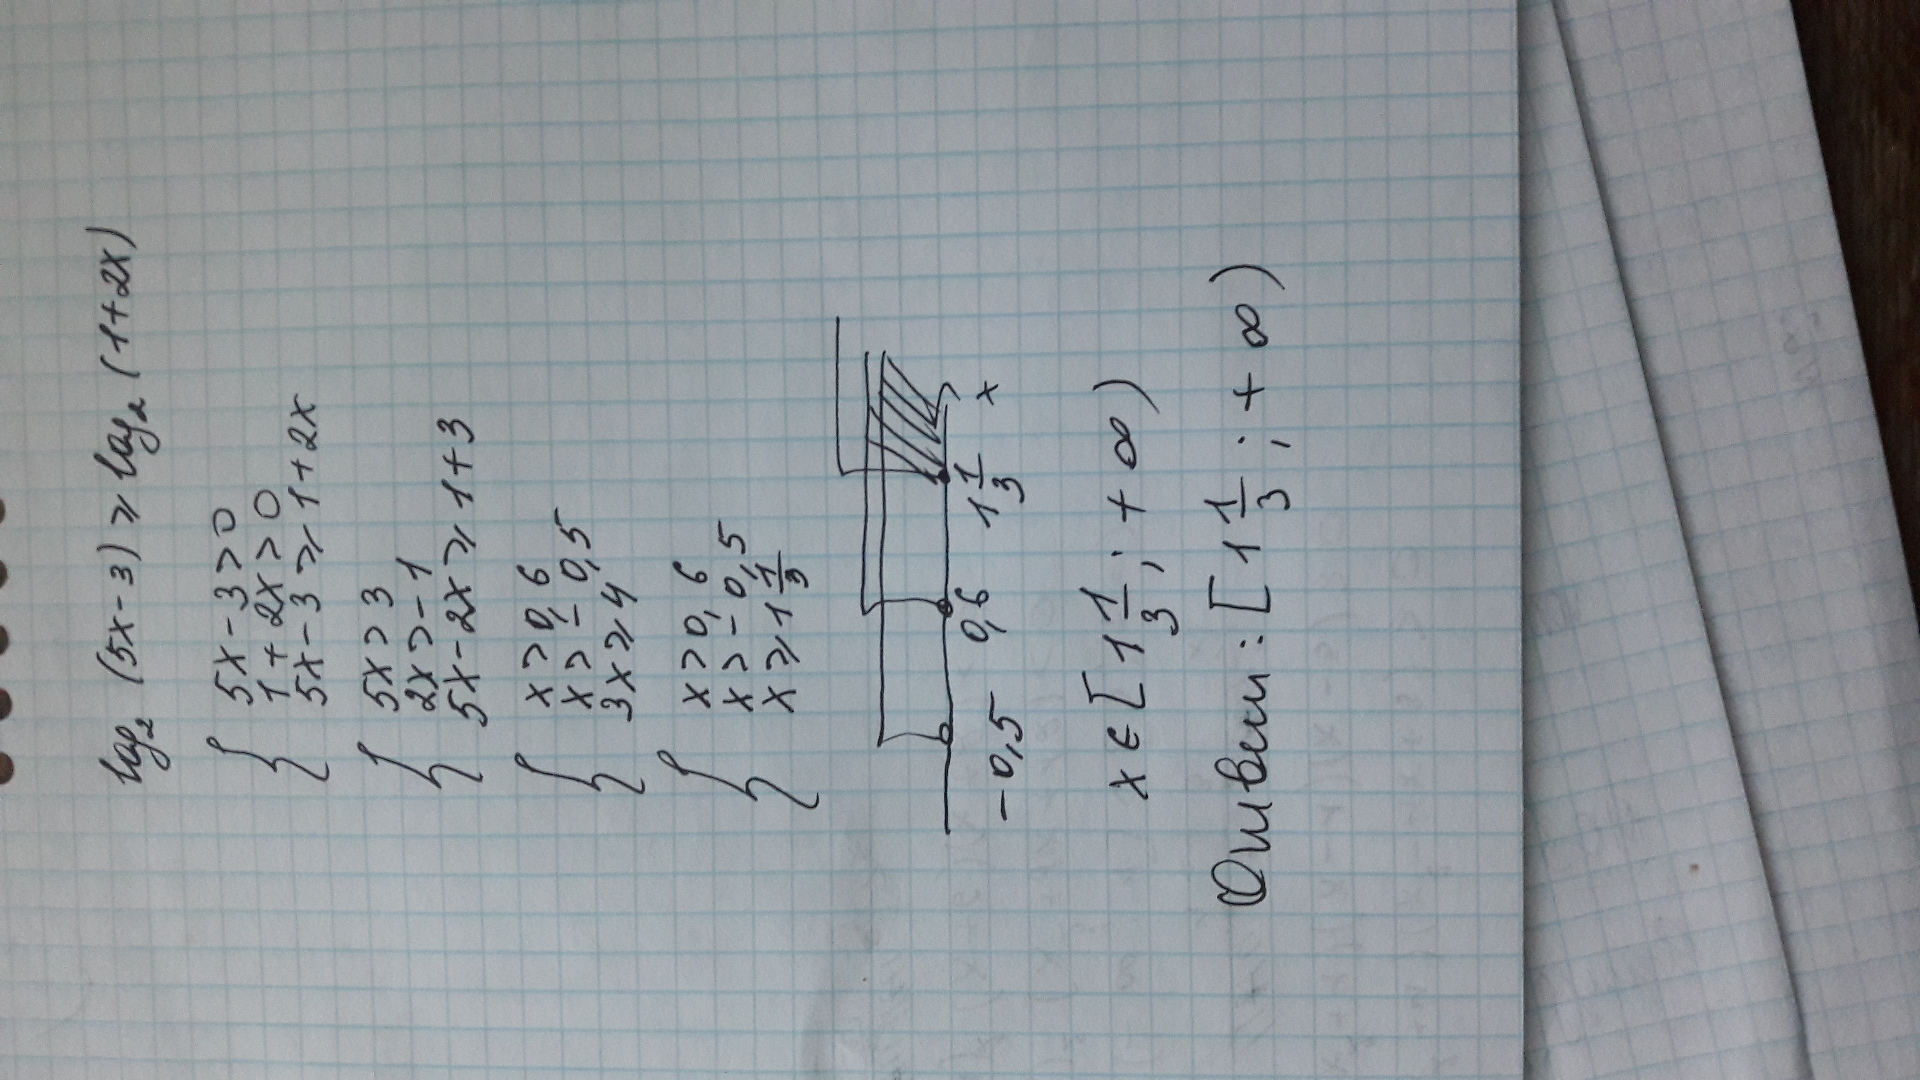 log₂ (5x - 3) ⩾ log₂ (1 + 2x)
{ 5x - 3 > 0
1 + 2x > 0
5x - 3 ⩾ 1 + 2x
{ 5x > 3
2x > -1
5x - 2x ⩾ 1 + 3
{ x > 0,6
x > -0,5
3x ⩾ 4
{ x > 0,6
x > -0,5
x ⩾ 1 1/3
-0,5 0,6 1 1/3 x
x ∈ [1 1/3; + ∞)
Ответ: [1 1/3; + ∞)